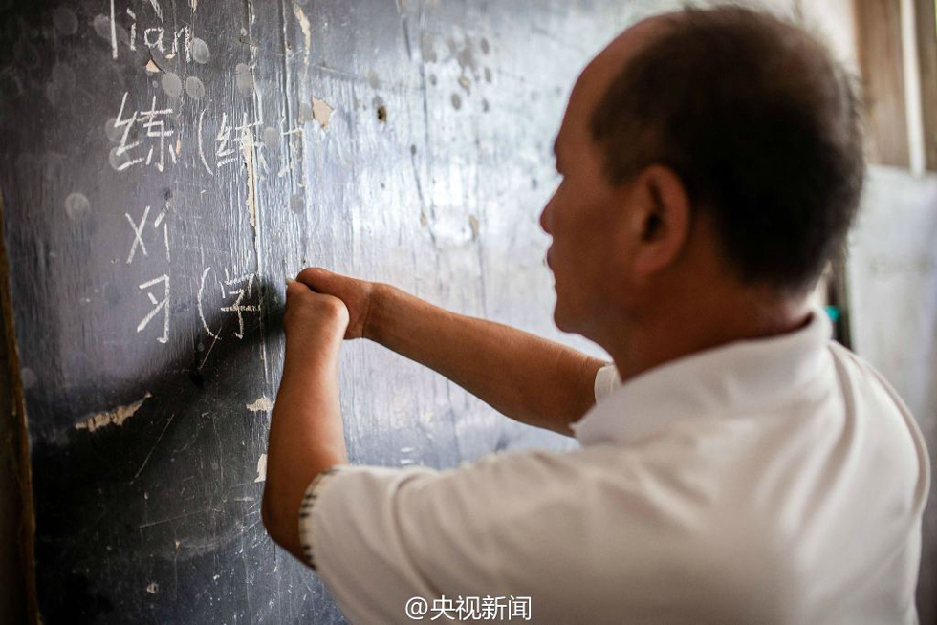 lian
练(练
xí
习(学
@央视新闻